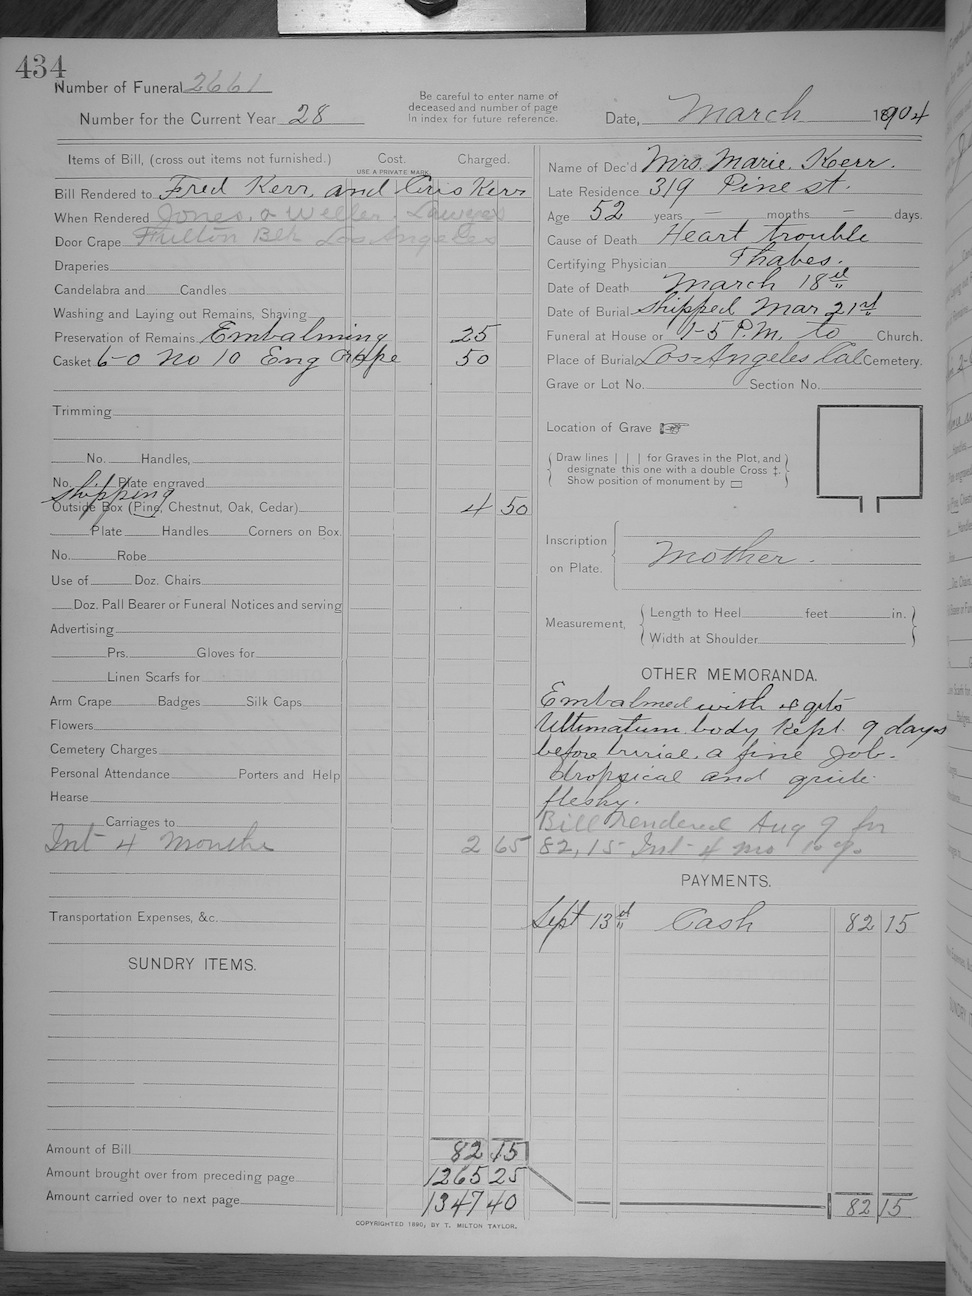 434
Number of Funeral 2661
Be careful to enter name of
deceased and number of page
in index for future reference.
Number for the Current Year 28
Date, March 1904
Items of Bill, (cross out items not furnished.) Cost. Charged.
USE A PRIVATE MARK.
Bill Rendered to Fred Kerr, and Cris Kerr
When Rendered Jones, & Weller. Lawyer
Door Crape Fhulton Blk Los Angeles
Draperies
Candelabra and Candles
Washing and Laying out Remains, Shaving
Preservation of Remains Embalming 25
Casket 6-0 No 10 Eng Crape 50
Trimming
No. Handles,
No. Plate engraved
Shipping
Outside Box (Pine, Chestnut, Oak, Cedar) 4 50
Plate Handles Corners on Box
No. Robe
Use of Doz. Chairs
Doz. Pall Bearer or Funeral Notices and serving
Advertising
Prs. Gloves for
Linen Scarfs for
Arm Crape Badges Silk Caps
Flowers
Cemetery Charges
Personal Attendance Porters and Help
Hearse
Carriages to
Int 4 Months 2 65
Transportation Expenses, &c.
SUNDRY ITEMS.
Amount of Bill 82 15
Amount brought over from preceding page 1265 25
Amount carried over to next page 1347 40
Name of Dec'd Mrs. Marie. Kerr.
Late Residence 319 Pine st.
Age 52 years — months — days.
Cause of Death Heart trouble
Certifying Physician Thabes.
Date of Death March 18th
Date of Burial Shipped Mar 21rd
Funeral at House or 1-5 P.M. to Church.
Place of Burial Los-Angeles Cal Cemetery.
Grave or Lot No. Section No.
Location of Grave
Draw lines | | | for Graves in the Plot, and
designate this one with a double Cross ‡.
Show position of monument by ▭
Inscription
on Plate. Mother.
Measurement, Length to Heel feet in.
Width at Shoulder
OTHER MEMORANDA.
Embalmed with 4 qts
Ultimatum. body kept 9 days
before burial. a fine job.
dropsical and quite
fleshy.
Bill rendered Aug 9 for
82,15 Int 4 mo
PAYMENTS.
Sept 13d Cash 82 15
82 15
COPYRIGHTED 1890, BY T. MILTON TAYLOR.